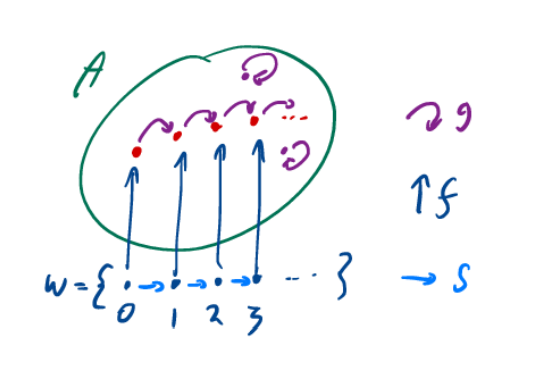 A
g
f
w = { 0 1 2 3 ... }
S